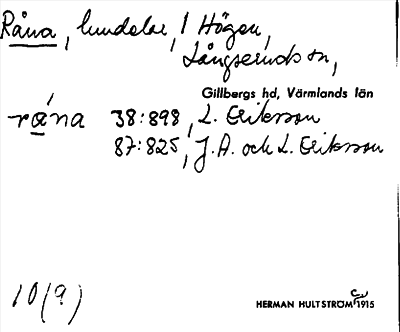 Råna, lundelar, / Högen,
Långserudssn,
Gillbergs hd, Värmlands län
råna 38:898, L. Eriksson
87:825, J.A. och L. Eriksson
10(9)
HERMAN HULTSTRÖM 1915